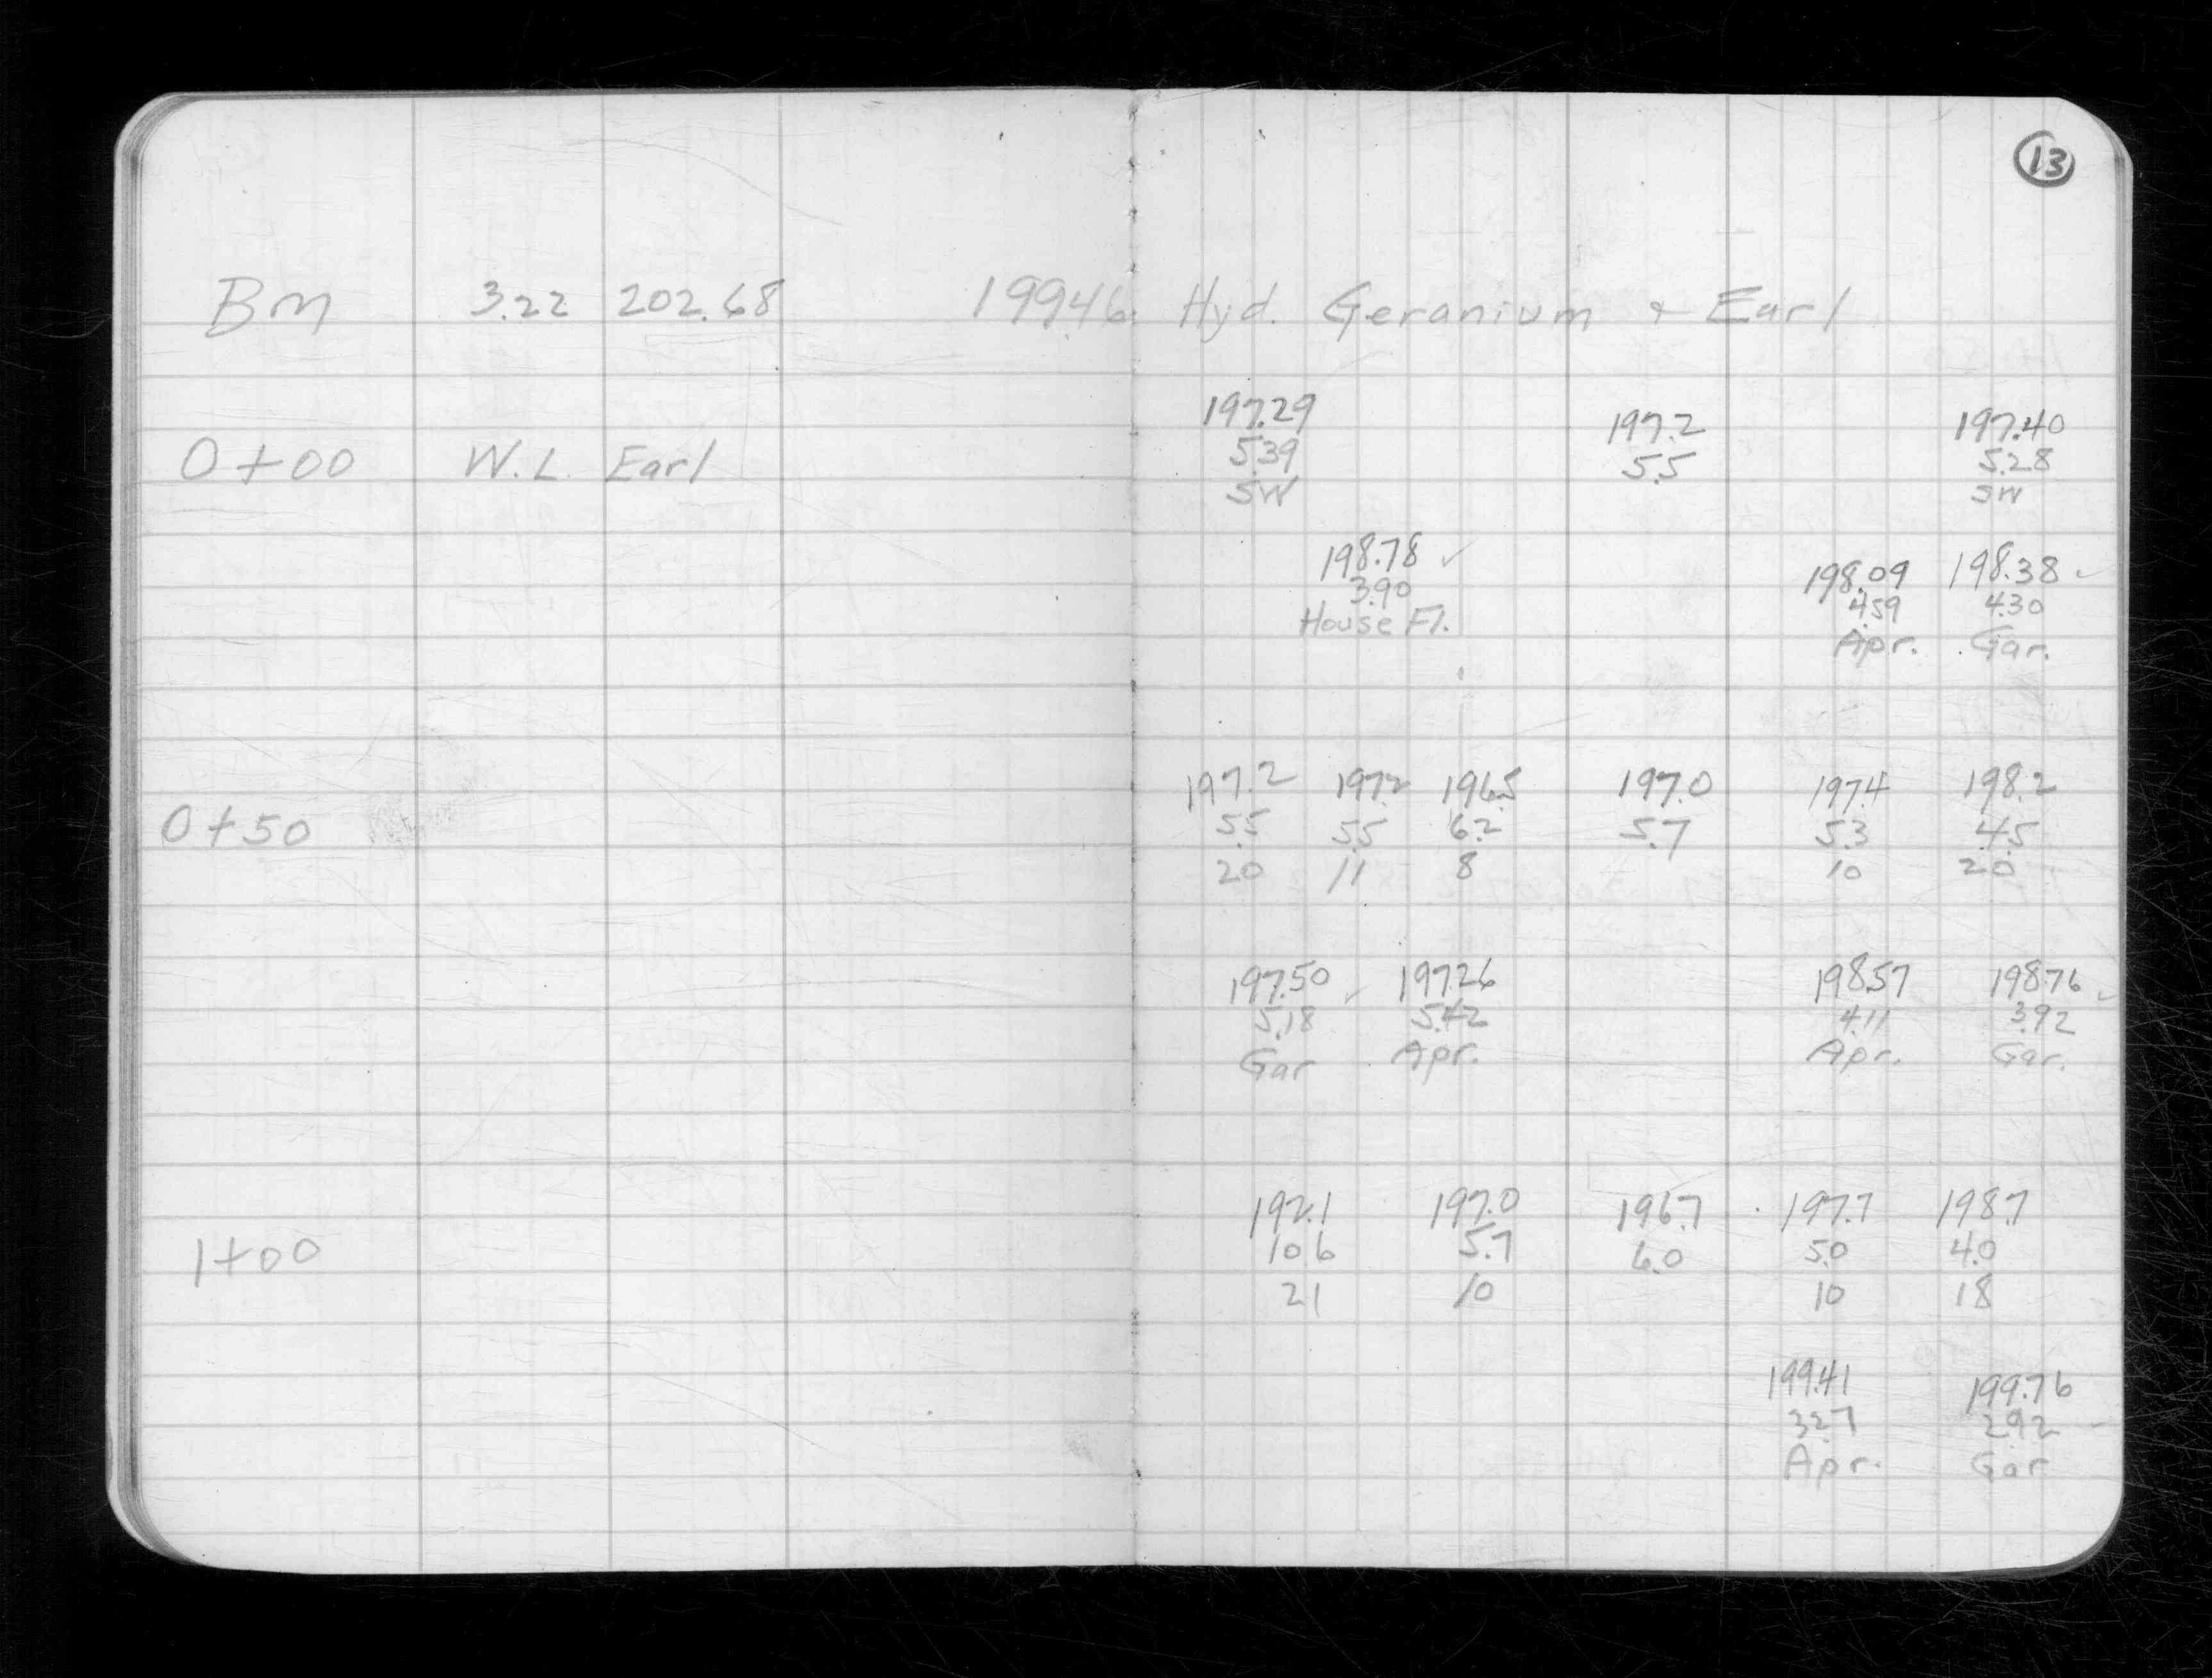 13
BM 3.22 202.68 199.46 Hyd. Geranium + Earl
197.29 197.2 197.40
0+00 W.L. Earl 5.39 5.5 5.28
SW SW
198.78 ✓ 198.09 198.38 ✓
3.90 4.59 4.30
House Fl. Apr. Gar.
197.2 197.2 196.5 197.0 197.4 198.2
0+50 5.5 5.5 6.2 5.7 5.3 4.5
20 11 8 10 20
197.50 ✓ 197.26 198.57 198.76 ✓
5.18 5.42 4.11 3.92
Gar Apr. Apr. Gar.
192.1 197.0 196.7 197.7 198.7
1+00 10.6 5.7 6.0 5.0 4.0
21 10 10 18
199.41 199.76
3.27 2.92 ✓
Apr. Gar